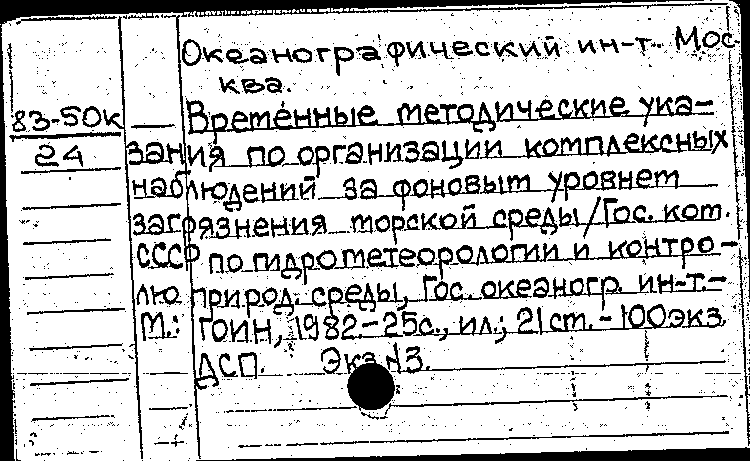 Океанографический ин-т. Мос
ква.
83-50к — Временные методические ука-
24 зания по организации комплексных
наблюдений за фоновым уровнем
загрязнения морской среды/Гос. ком.
СССР по гидрометеорологии и контро-
лю природ. среды, Гос. океаногр. ин-т.-
М.: ГОИН, 1982.-25с., ил.; 21 cm. - 100 экз.
ДСП. Экз N3.